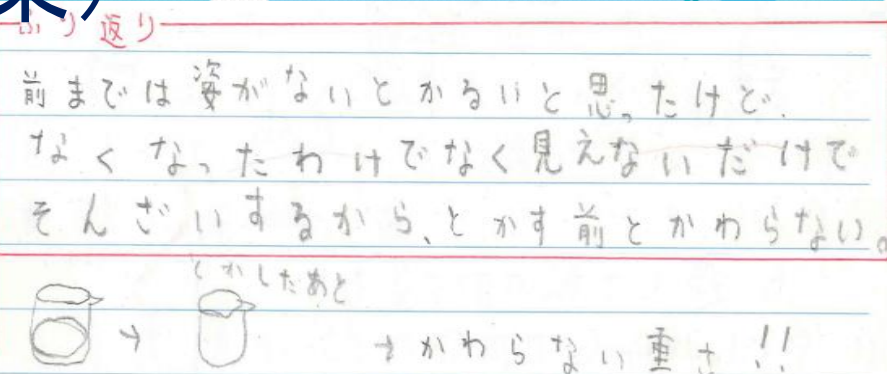 ふり返り
前までは姿がないとかるいと思ったけど、
なくなったわけでなく見えないだけで
そんざいするから、とかす前とかわらない。
とかしたあと
→ → かわらない重さ!!